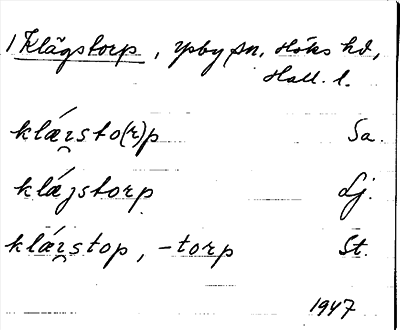 1 Klägstorp, Ysby sn, Höks hd,
Hall. l.
klǽɪ̯sto(r)p Sa.
klǽjstorp Lj.
klǽɪ̯stop, -torp St.
1947